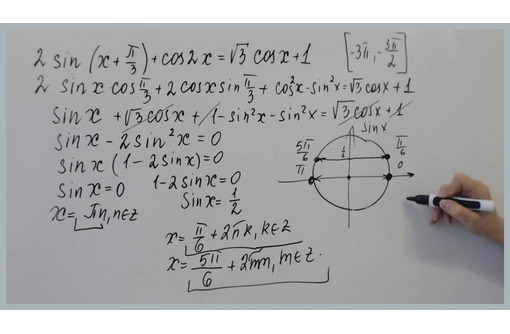 2 sin (x + π/3) + cos2x = √3 cosx + 1 [-3π, -3π/2]
2 sinx cos π/3 + 2 cosx sin π/3 + cos²x - sin²x = √3 cosx + 1
sinx + √3 cosx + 1 - sin²x - sin²x = √3 cosx + 1
sinx - 2 sin²x = 0
sinx (1 - 2 sinx) = 0
sinx = 0 1 - 2 sinx = 0
sinx = 1/2
x = πn, n∈z
x = π/6 + 2πk, k∈z
x = 5π/6 + 2πm, m∈z.
sinx
5π/6 1/2 π/6
π 0